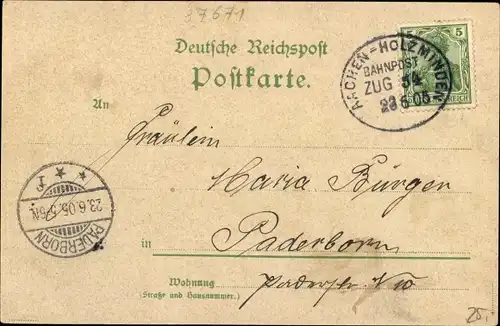 37671
Deutsche Reichspost
Postkarte.
AACHEN-HOLZMINDEN
BAHNPOST
ZUG 54
23 6 05
5
REICH
An
Fräulein
Maria Bürger
in Paderborn
Wohnung
(Straße und Hausnummer.)
23.6.05.
PADERBORN
25.-